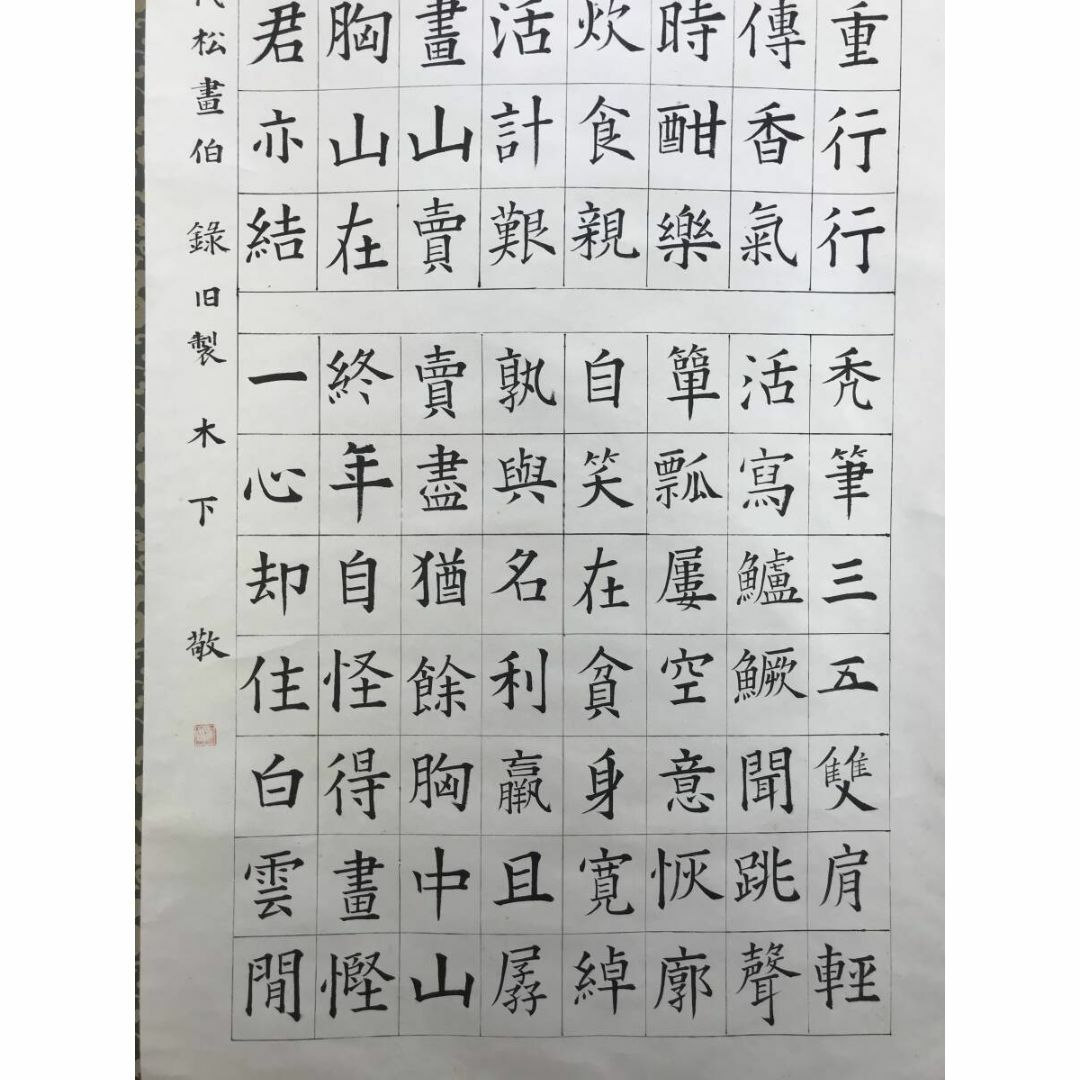 重行行
禿筆三五雙肩輕
傳香氣
活寫鱸鱖聞跳聲
時酣樂
簞瓢屢空意恢廓
炊食親
自笑在貧身寬綽
活計艱
孰與名利羸且孱
畫山賣
賣盡猶餘胸中山
胸山在
終年自怪得畫慳
君亦結
一心却住白雲閒
松畫伯 錄旧製 木下 敬